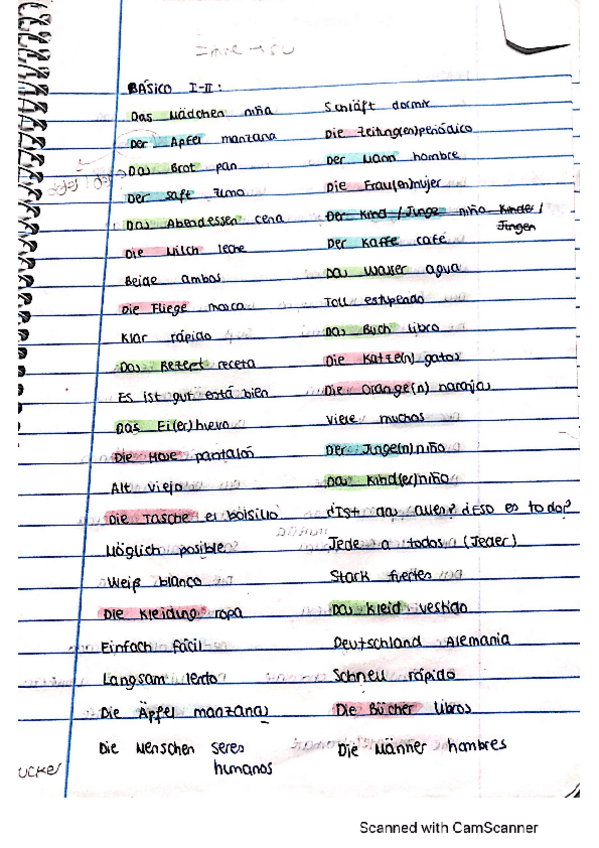 BÁSICO I-II:
Das Mädchen niña Schläft dormir
Der Apfel manzana Die Zeitung(en) periódico
Das Brot pan Der Mann hombre
Der Saft zumo Die Frau(en) mujer
Das Abendessen cena Der Kind / Junge niño Kinder /
Jungen
Die Milch leche Der Kaffe café
Beide ambos Das Wasser agua
Die Fliege mosca Toll estupendo
Klar rápido Das Buch libro
Das Rezept receta Die Katze(n) gatos
Es ist gut está bien Die Orange(n) naranjas
Das Ei(er) huevo Viele muchos
Die Hose pantalón Der Junge(n) niño
Alt viejo Das Kind(er) niño
Die Tasche el bolsillo ¿Ist das alles? ¿Eso es todo?
Möglich posible Jede a todos (Jeder)
Weiß blanco Stark fuertes
Die Kleidung ropa Das Kleid vestido
Einfach fácil Deutschland Alemania
Langsam lento Schnell rápido
Die Äpfel manzanas Die Bücher libros
Die Menschen seres Die Männer hombres
humanos
ucker
Scanned with CamScanner